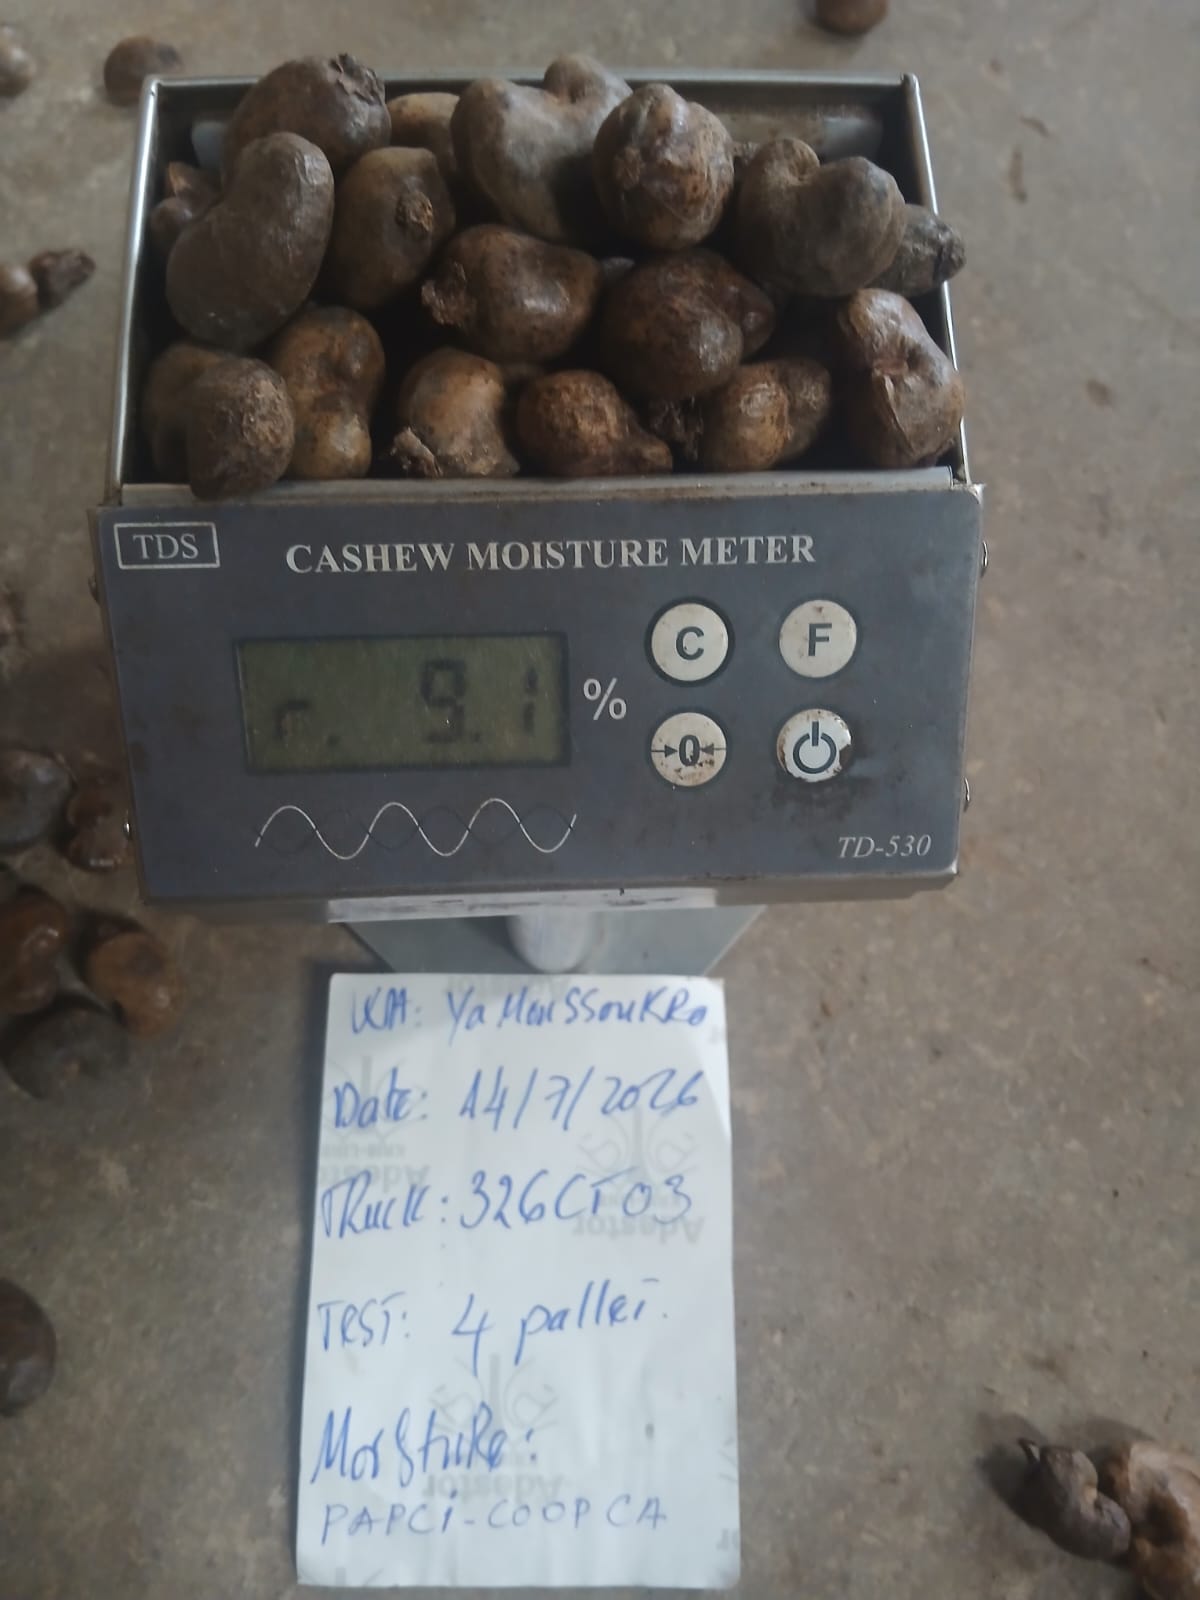 TDS
CASHEW MOISTURE METER
C F
r. 9.1 %
→0←
TD-530
WH: YaMoussouKRo
Date: 14/7/2026
TRuck: 326CT03
TEST: 4 pallet.
MoiStuRe:
PAPCi-COOP CA